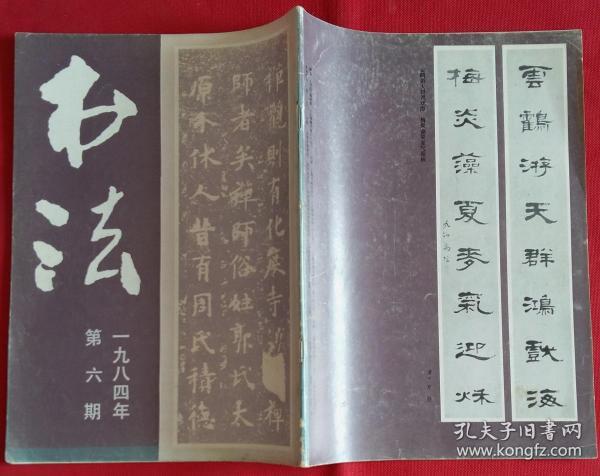 书法
一九八四年
第六期
觀則有化度寺
師者矣禪師俗姓郭氏太
原介休人昔有周氏積德
雲鶴游天群鴻戲海
梅炎藻夏麥氣迎秌
孔夫子旧书网
www.kongfz.com